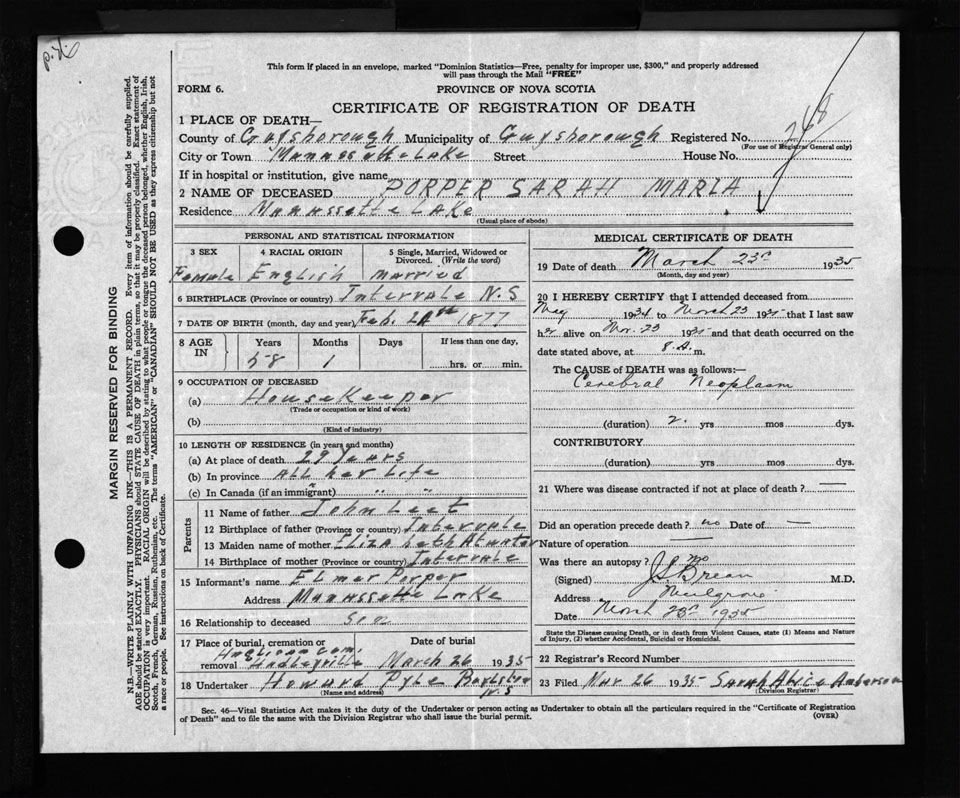 This form if placed in an envelope, marked "Dominion Statistics—Free, penalty for improper use, $300," and properly addressed
will pass through the Mail "FREE"
FORM 6.
PROVINCE OF NOVA SCOTIA
CERTIFICATE OF REGISTRATION OF DEATH
1 PLACE OF DEATH—
County of Guysborough Municipality of Guysborough Registered No. 260
(For use of Registrar General only)
City or Town Manassette Lake Street House No.
If in hospital or institution, give name
2 NAME OF DECEASED PORPER SARAH MARIA
Residence Manassette Lake
(Usual place of abode)
PERSONAL AND STATISTICAL INFORMATION
3 SEX 4 RACIAL ORIGIN 5 Single, Married, Widowed or Divorced. (Write the word)
Female English married
6 BIRTHPLACE (Province or country) Intervale N.S
7 DATE OF BIRTH (month, day and year) Feb. 1877
8 AGE IN Years Months Days If less than one day,
58 1 hrs. or min.
9 OCCUPATION OF DECEASED
(a) HouseKeeper
(Trade or occupation or kind of work)
(b)
(Kind of industry)
10 LENGTH OF RESIDENCE (in years and months)
(a) At place of death 29 years
(b) In province All her Life
(c) In Canada (if an immigrant) " "
Parents
11 Name of father John Leet
12 Birthplace of father (Province or country) Intervale
13 Maiden name of mother Elizabeth Atwater
14 Birthplace of mother (Province or country) Intervale
15 Informant's name Elmer Porper
Address Manassette Lake
16 Relationship to deceased Son
17 Place of burial, cremation or removal Date of burial
Anglican Cem.
Hadleyville March 26 1935
18 Undertaker Howard Pyle N.S
(Name and address)
MEDICAL CERTIFICATE OF DEATH
19 Date of death March 23rd 1935
(Month, day and year)
20 I HEREBY CERTIFY that I attended deceased from
May 1934 to March 23 1935 that I last saw
her alive on 23 1935 and that death occurred on the
date stated above, at 8 A. m.
The CAUSE of DEATH was as follows:—
Cerebral Neoplasm
(duration) 2 yrs mos dys.
CONTRIBUTORY
(duration) yrs. mos. dys.
21 Where was disease contracted if not at place of death? —
Did an operation precede death? no Date of —
Nature of operation —
Was there an autopsy? No
(Signed) M.D.
Address Mulgrave
Date 1935
State the Disease causing Death, or in death from Violent Causes, state (1) Means and Nature
of Injury, (2) whether Accidental, Suicidal or Homicidal.
22 Registrar's Record Number
23 Filed Mar 26 1935 Sarah Alice Anderson
(Division Registrar)
Sec. 46—Vital Statistics Act makes it the duty of the Undertaker or person acting as Undertaker to obtain all the particulars required in the "Certificate of Registration
of Death" and to file the same with the Division Registrar who shall issue the burial permit.
(OVER)
MARGIN RESERVED FOR BINDING
N.B.—WRITE PLAINLY WITH UNFADING INK—THIS IS A PERMANENT RECORD. Every item of information should be carefully supplied.
AGE should be stated EXACTLY. PHYSICIANS should STATE CAUSE OF DEATH in plain terms, so that it may be properly classified. Exact statement of
OCCUPATION is very important. RACIAL ORIGIN will be described by stating to what people or tongue the deceased person belonged, whether English, Irish,
Scotch, French, German, Russian, Ruthenian, etc. The terms "AMERICAN" or "CANADIAN" SHOULD NOT BE USED as they express citizenship but not
a race or people. See instructions on back of Certificate.